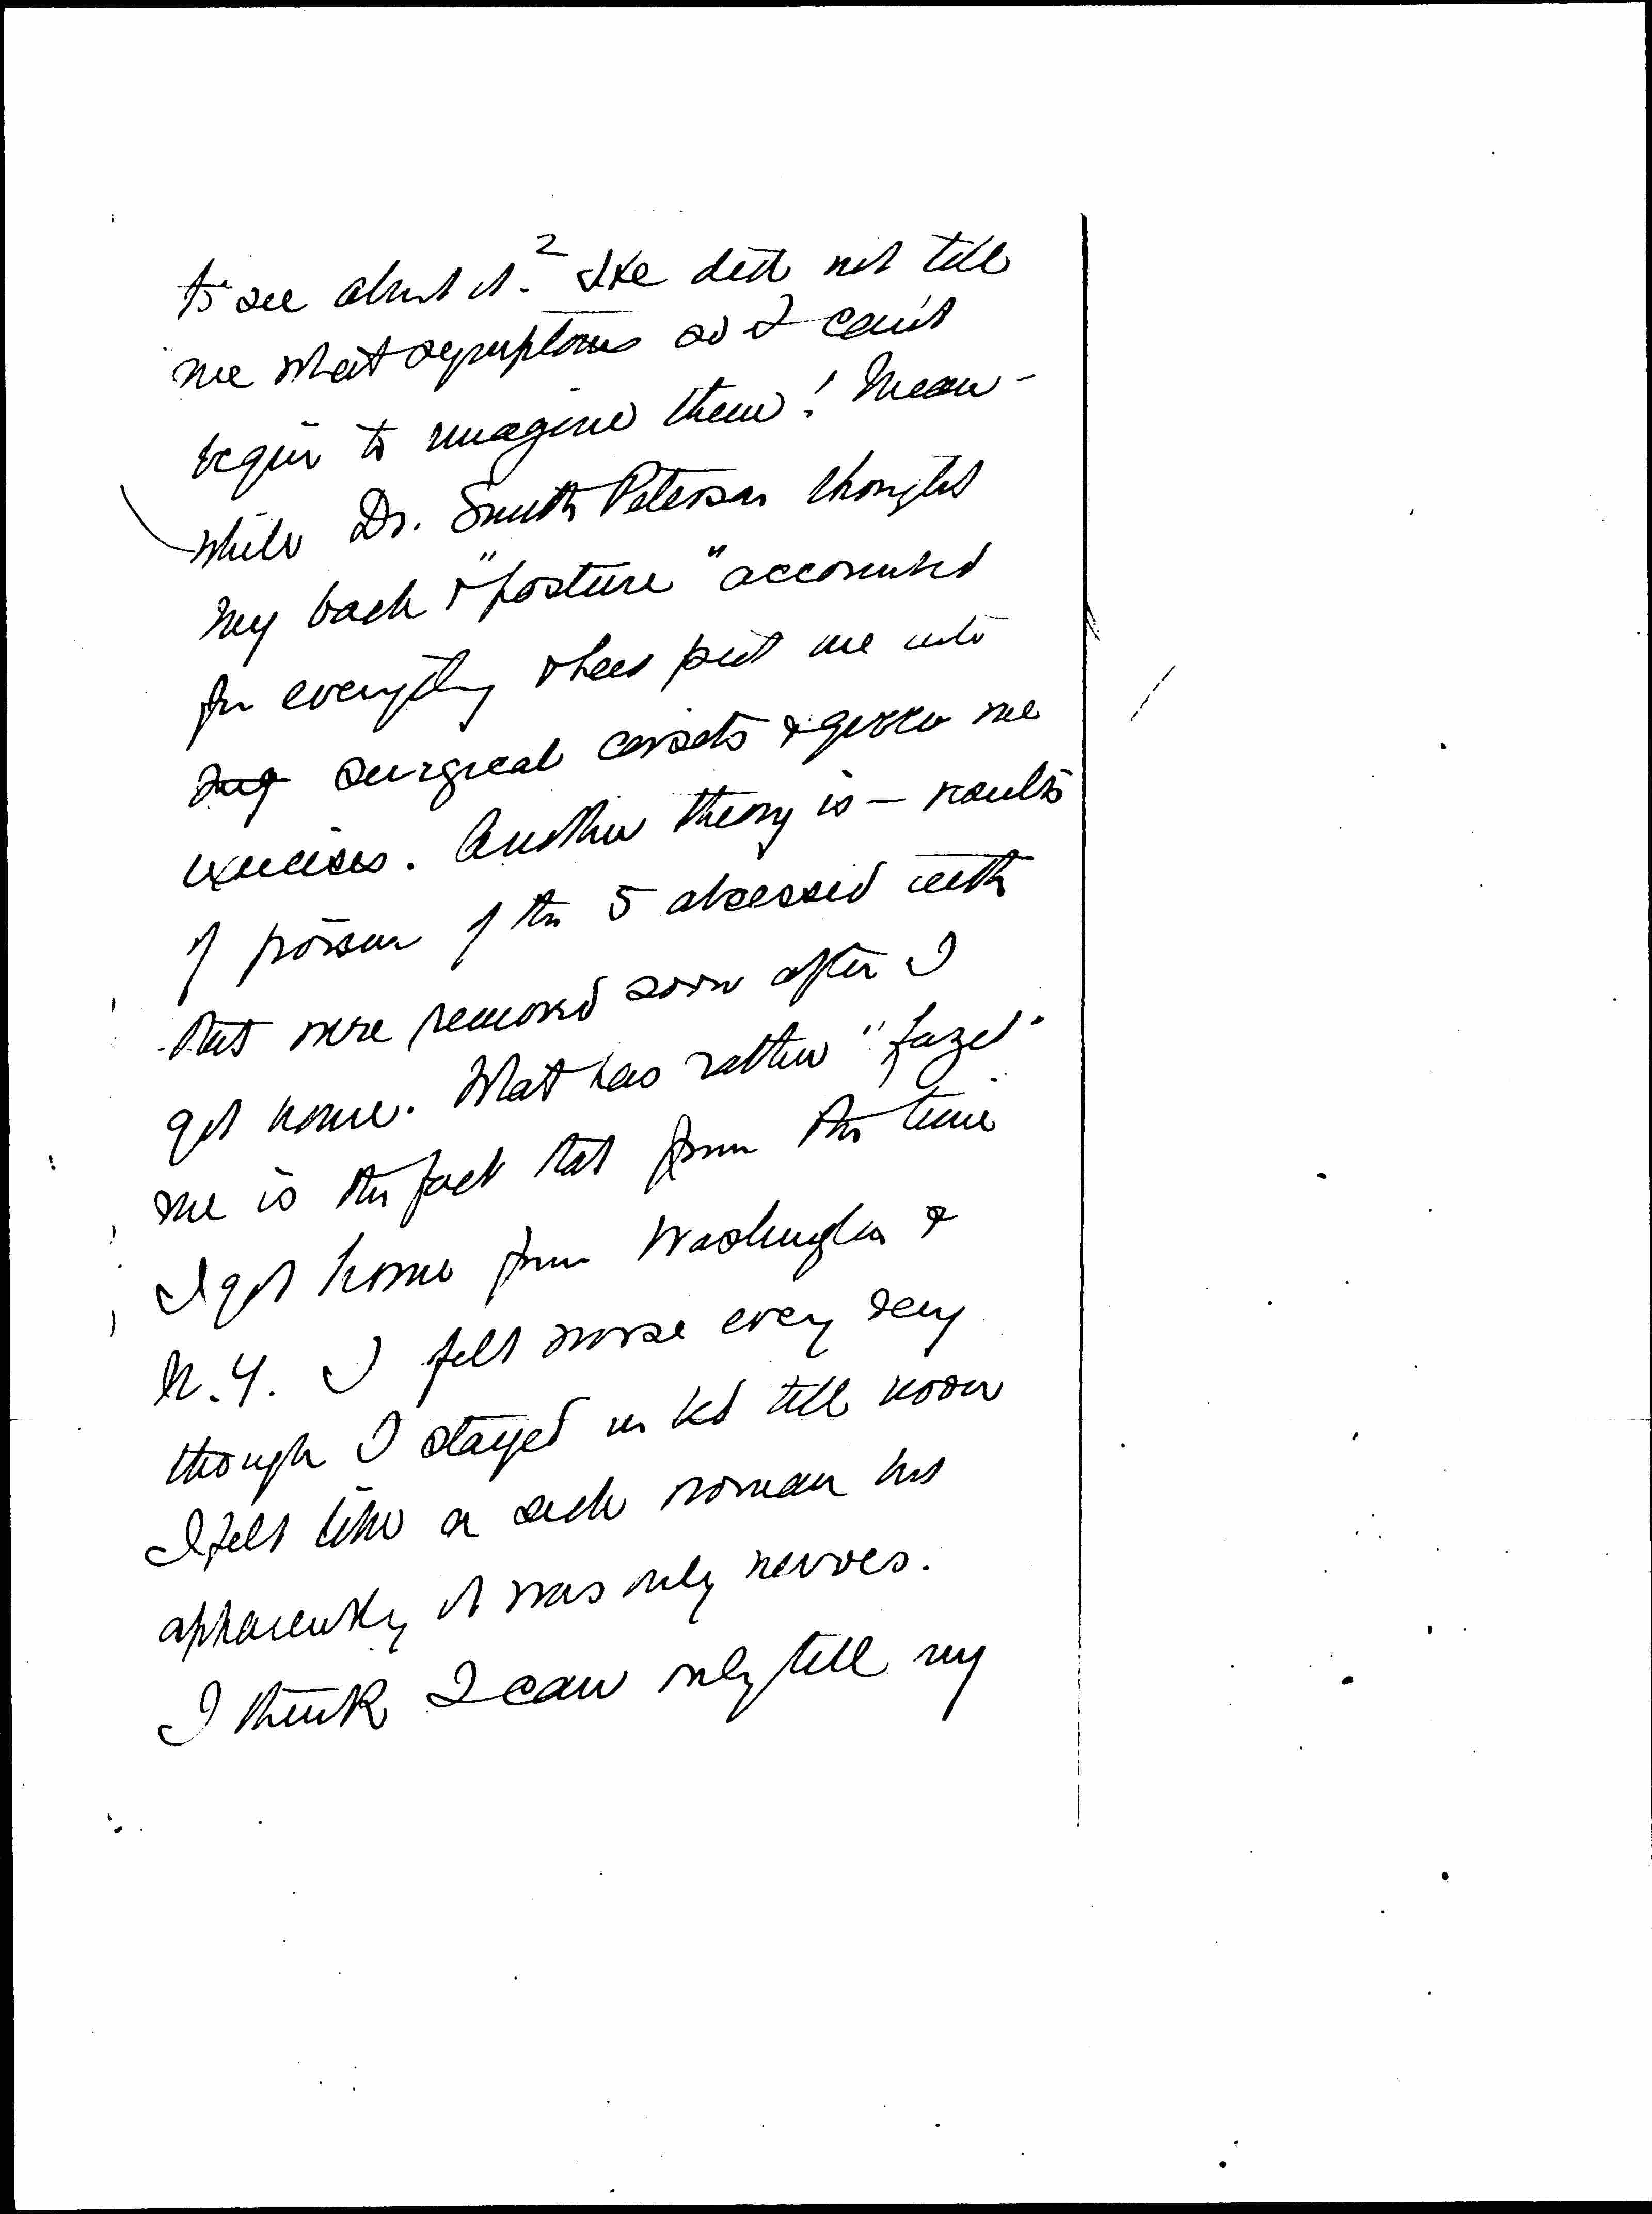 2
to see about it. She did not tell
me what symptoms so I can't
begin to imagine them! Mean-
while Dr. Smith Petersen thought
my back & "posture" accounted
for everything & has put me into
surgical corsets & given me
exercises. Another theory is — results
of poison of the 5 abcessed teeth
that were removed soon after I
got home. What has rather "fazed"
me is the fact that from the time
I got home from Washington &
N.Y. I felt worse every day
though I stayed in bed till noon
I felt like a sick woman but
apparently it was only nerves.
I think I can only tell my